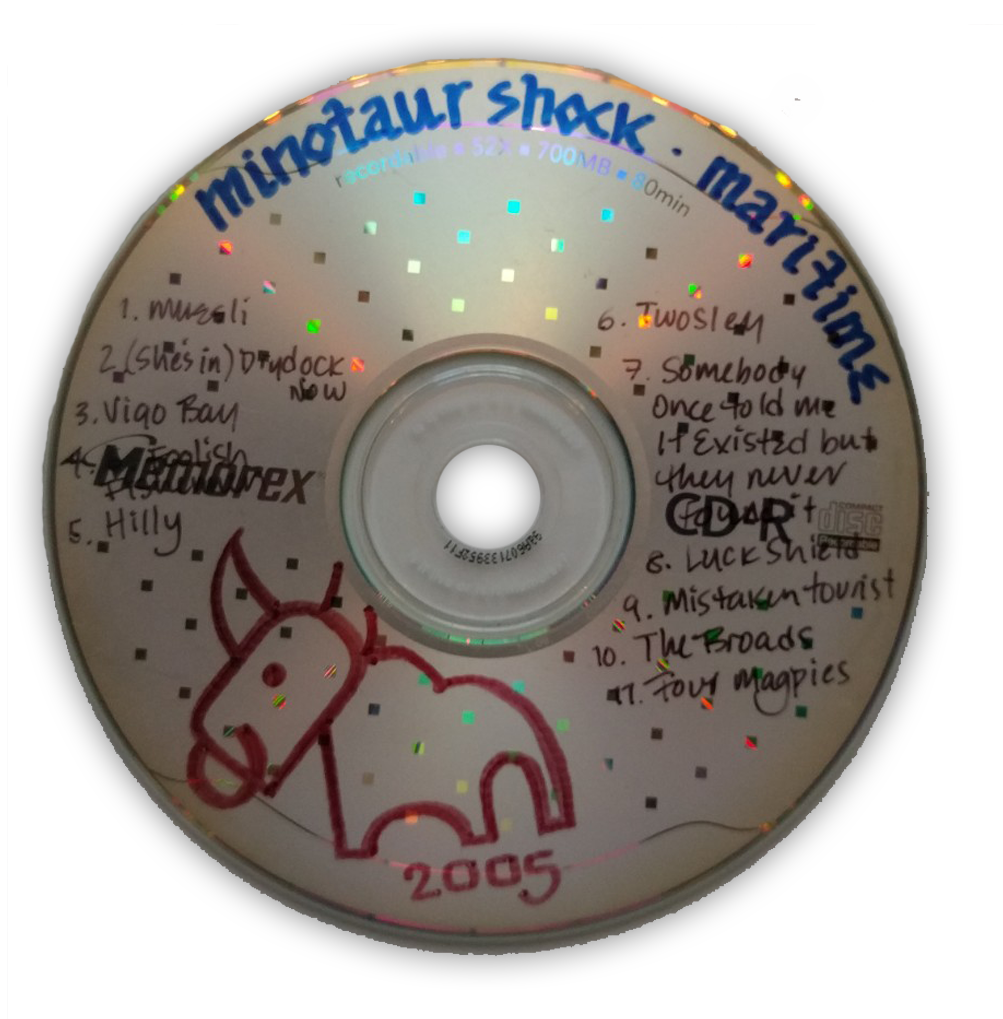 minotaur shock - maritime
recordable ▪ 52X ▪ 700MB ▪ 80min
1. muesli
2. (She's in) Drydock
Now
3. Vigo Bay
4. Foolish
Memorex
5. Hilly
6. Twosley
7. Somebody
Once told me
It Existed but
they never
found it
CD-R
COMPACT
disc
8. Luck Shield
9. Mistaken tourist
10. The Broads
11. Four Magpies
2005